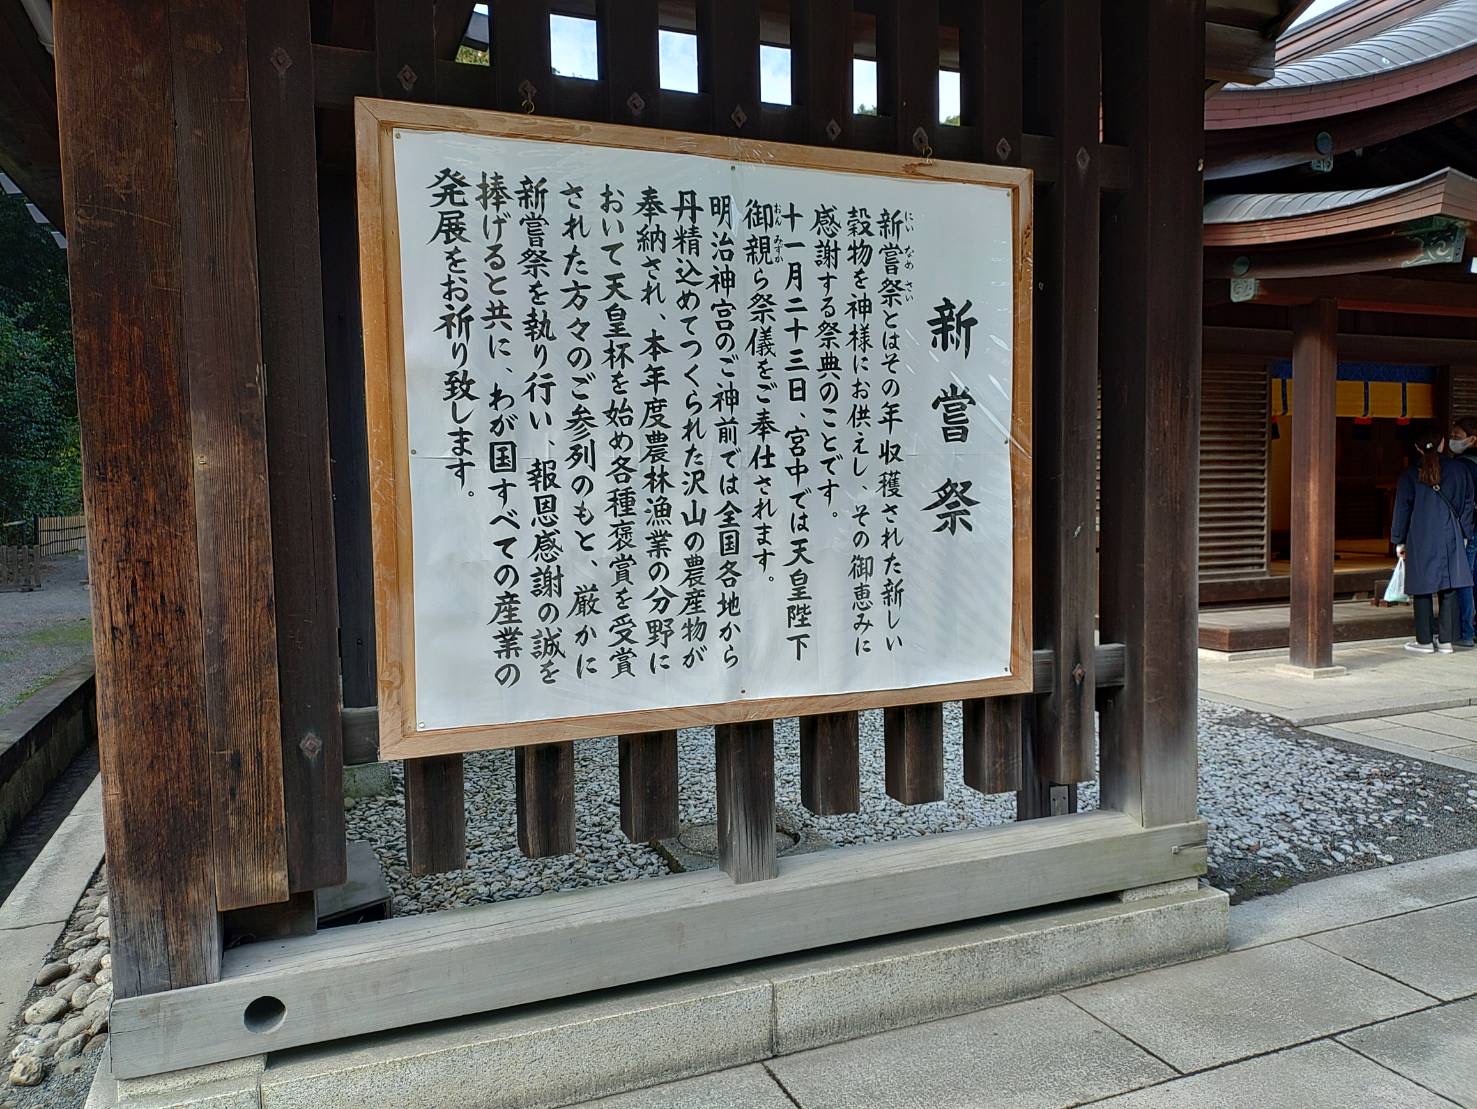 新嘗祭
新嘗祭とはその年収穫された新しい
穀物を神様にお供えし、その御恵みに
感謝する祭典のことです。
十一月二十三日、宮中では天皇陛下
御親ら祭儀をご奉仕されます。
明治神宮のご神前では全国各地から
丹精込めてつくられた沢山の農産物が
奉納され、本年度農林漁業の分野に
おいて天皇杯を始め各種褒賞を受賞
された方々のご参列のもと、厳かに
新嘗祭を執り行い、報恩感謝の誠を
捧げると共に、わが国すべての産業の
発展をお祈り致します。
にい なめ さい
おん みずか